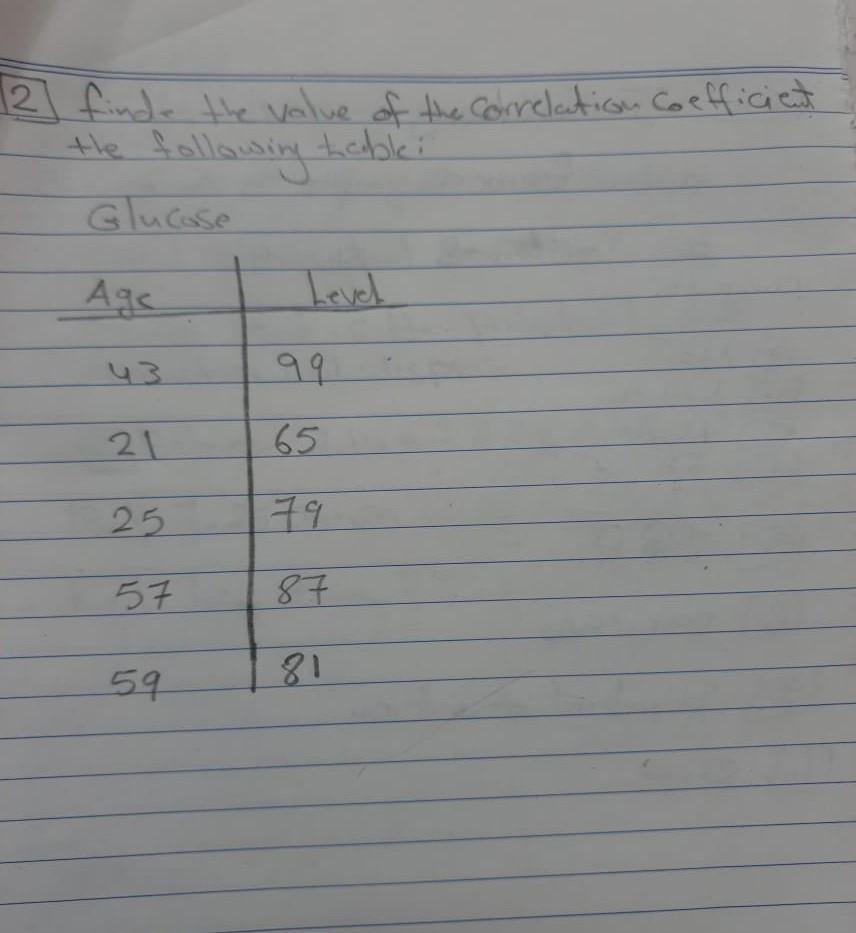 2 finde the value of the Correlation Coefficient
the following table:
Glucose
Age Level
43 99
21 65
25 79
57 87
59 81